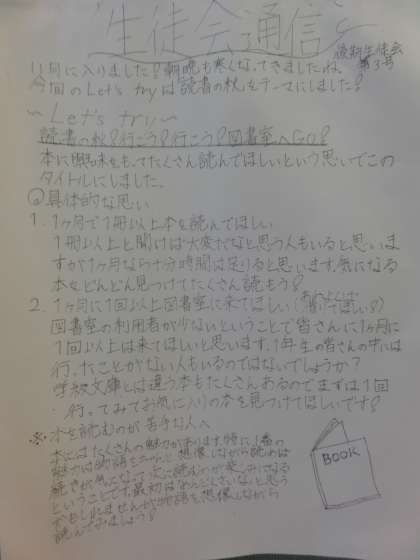 生徒会通信
後期生徒会
第3号
11月に入りました!朝晩も寒くなってきましたね。
今回のLet's tryは「読書の秋」をテーマにしました!
~Let's try~
読書の秋!行こう!行こう!図書室へGO!
本に興味をもってたくさん読んでほしいという思いでこの
タイトルにしました。
具体的な思い
1. 1ヶ月で1冊以上本を読んでほしい
1冊以上と聞けば大変だなと思う人もいると思いま
すが1ヶ月なら十分時間は足りると思います。気になる
本をどんどん見つけてたくさん読もう!
2. 1ヶ月に1回以上図書室に来てほしい
図書室の利用者が少ないということで皆さんに1ヶ月に
1回以上は来てほしいと思います。1年生の皆さんの中には
行ったことがない人もいるのではないでしょうか?
学級文庫とは違う本もたくさんあるのでまずは1回
行ってみてお気に入りの本を見つけてほしいです!
※本を読むのが苦手な人へ
本にはたくさんの魅力があります。特に1番の
魅力は物語を想像しながら読めば
続きが気になって次に読むのが楽しみになる
ということです。最初はめんどくさいなと思う
かもしれませんが物語を想像しながら
読んでみましょう!
BOOK